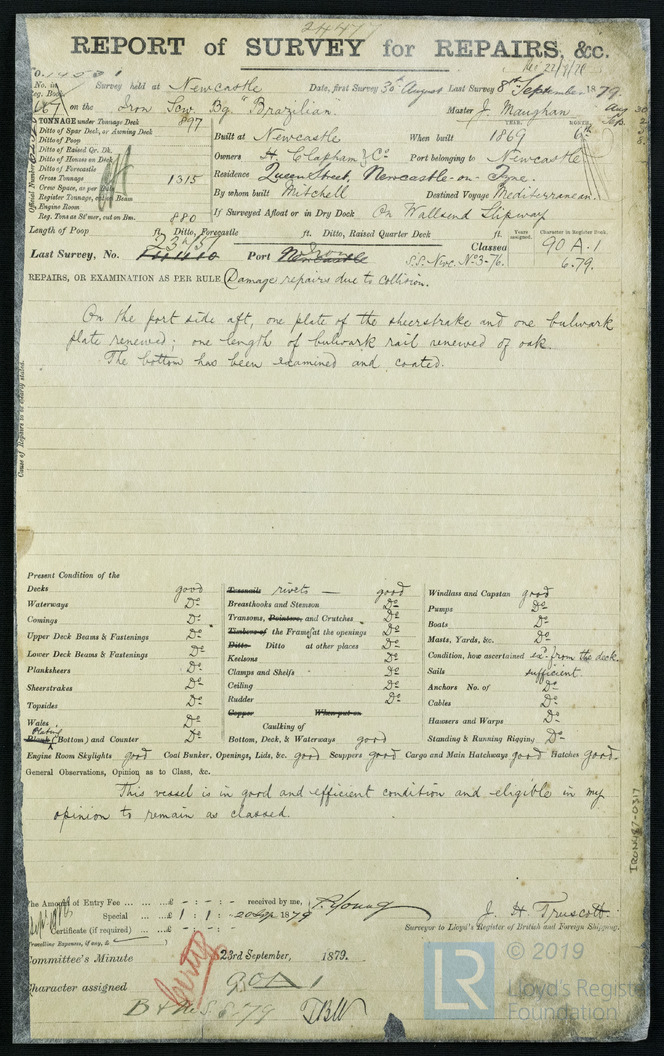 24477
REPORT of SURVEY for REPAIRS, &c.
No. in Survey held at Newcastle Date, first Survey 30th August Last Survey 8th September 1879.
on the Iron Sow Bg "Brazilian" Master J. Maughan
TONNAGE under Tonnage Deck 897
Ditto of Spar Deck, or Awning Deck
Ditto of Poop
Ditto of Raised Qr. Dk.
Ditto of Houses on Deck
Ditto of Forecastle
Gross Tonnage 1315
Crew Space, as per
Register Tonnage, cut on Beam
Engine Room
Reg. Tons as St'mer, cut on Bm. 880
YEAR. MONTH.
Built at Newcastle When built 1869 6th
Owners H. Clapham & Co Port belonging to Newcastle
Residence Queen Street, Newcastle-on-Tyne.
By whom built Mitchell Destined Voyage Mediterranean.
If Surveyed Afloat or in Dry Dock On Wallsend Slipway
Length of Poop ft. Ditto, Forecastle ft. Ditto, Raised Quarter Deck ft.
Years assigned. Character in Register Book.
Last Survey, No. Port Newcastle S.S. Nwc. No 3-76. Classed 90 A.1
6.79.
REPAIRS, OR EXAMINATION AS PER RULE Damage repairs due to collision.
On the port side aft, one plate of the sheerstrake and one bulwark
plate renewed; one length of bulwark rail renewed of oak.
The bottom has been examined and coated.
Cause of Repairs to be clearly stated.
Present Condition of the
Decks good
Waterways Do
Comings Do
Upper Deck Beams & Fastenings Do
Lower Deck Beams & Fastenings Do
Planksheers Do
Sheerstrakes Do
Topsides Do
Wales Do
Plating
Plank (Bottom) and Counter Do
Treenails rivets — good
Breasthooks and Stemson Do
Transoms, Pointers, and Crutches Do
Timbers of the Frames at the openings Do
Ditto Ditto at other places Do
Keelsons Do
Clamps and Shelfs Do
Ceiling Do
Rudder Do
Copper When put on
Caulking of
Bottom, Deck, & Waterways good
Windlass and Capstan good
Pumps Do
Boats Do
Masts, Yards, &c. Do
Condition, how ascertained exd from the deck.
Sails sufficient
Anchors No. of Do
Cables Do
Hawsers and Warps Do
Standing & Running Rigging Do
Engine Room Skylights good Coal Bunker, Openings, Lids, &c. good Scuppers good Cargo and Main Hatchways good Hatches good.
General Observations, Opinion as to Class, &c.
This vessel is in good and efficient condition and eligible in my
opinion to remain as classed.
The Amount of Entry Fee £ - : - : - received by me, T. Young
Special £ 1 : 1 : - 20 Sep 1879
Certificate (if required) £ - : - : -
(Travelling Expenses, if any, £ )
J. H. Truscott.
Surveyor to Lloyd's Register of British and Foreign Shipping.
Committee's Minute 23rd September, 1879.
Character assigned 90 A 1
IRON 487-0317
© 2019
LR
Lloyd's Register
Foundation